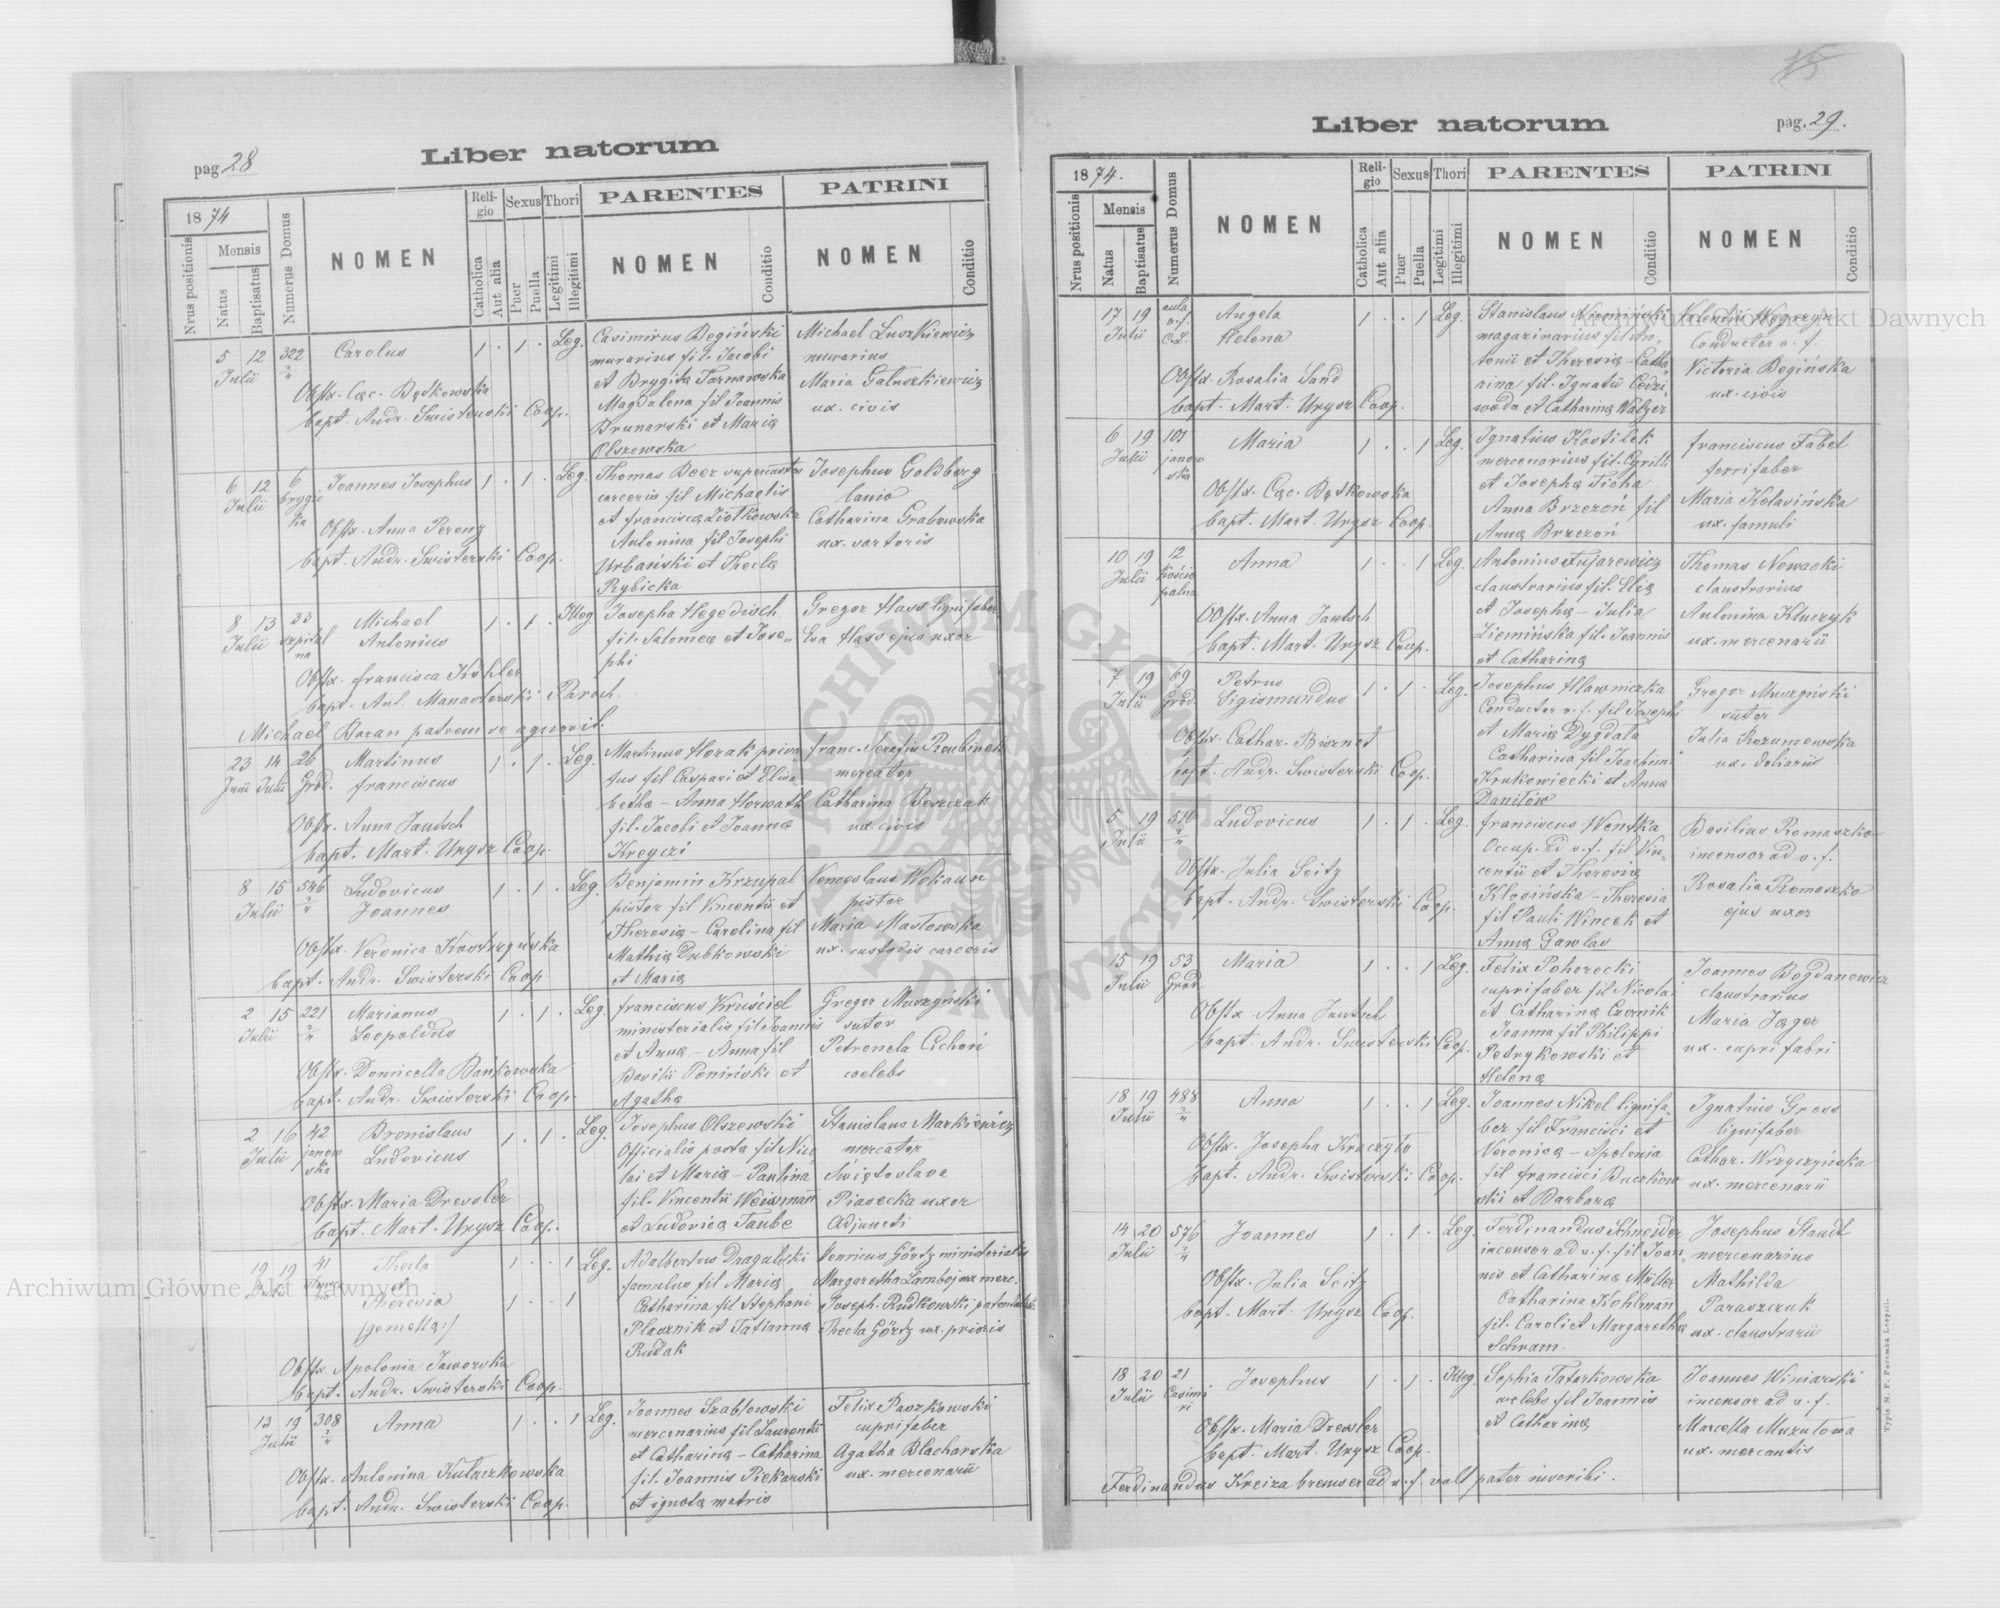 pag. 28
Liber natorum
1874
Mensis
Nrus positionis
Natus
Baptisatus
Numerus Domus
NOMEN
Religio
Catholica
Aut alia
Sexus
Puer
Puella
Thori
Legitimi
Illegitimi
PARENTES
NOMEN
Conditio
PATRINI
NOMEN
Conditio
5 12 322
Julii
Carolus
1 . 1 . Leg.
Obstx. Caec. Bętkowska
bapt. Andr. Swisterski Coop.
Casimirus Begiński
murarius fil. Jacobi
et Brygita Tarnawska
Magdalena fil Joannis
Brunarski et Maria
Olszewska
Michael Luszkiewicz
murarius
Maria Galuszkiewicz
ux. civis
6 12 6
Julii
Joannes Josephus
1 . 1 . Leg.
Obstx. Anna Perenz
bapt. Andr. Swisterski Coop.
Thomas Beer
carceris fil Michaelis
et francisca Ziółkowska
Antonina fil Josephi
Urbański et Thecla
Rybicka
Josephus Goldberg
lanio
Catharina Grabowska
ux. sartoris
8 13 33
Julii szpital
na
Michael
Antonius
1 . 1 . Illeg
Obstx. francisca Köhler
bapt. Ant. Manasterski Paroch.
Michael Baran patrem se agnovit.
Josepha Hegedisch
fil. Salomea et Jose-
phi
Gregor Hass lignifaber
Eva Hass ejus uxor
23 14 26
Junii Julii Gród.
Martinus
franciscus
1 . 1 . Leg.
Obstx. Anna Jautsch
bapt. Mart. Urysz Coop.
Martinus Horak priva
tus fil Caspari et Elisa
betha - Anna Horwath
fil. Jacobi et Joanna
Kreyczi
franc. Serafin Roubinek
mercator
Catharina Beszczak
ux. civis
8 15 546
Julii
Ludovicus
Joannes
1 . 1 . Leg.
Obstx. Veronica Kostrzyńska
bapt. Andr. Swisterski Coop
Benjamin Krzupal
pistor fil Vincentii et
Theresia - Carolina fil
Mathia Dubkowski
et Maria
Venceslaus Wokaun
pistor
Maria Mastowska
ux. custodis carceris
2 15 221
Julii
Marianus
Leopoldus
1 . 1 . Leg.
Obstx. Domicella Bańkowska
bapt. Andr. Swisterski Coop.
franciscus Kruściel
ministerialis fil Joannis
et Anna - Anna fil
Basilii Poniński et
Agatha
Gregor Muszyński
sutor
Petronela Cichoń
coelebs
2 16 42
Julii janow
ska
Bronislaus
Ludovicus
1 . 1 . Leg.
Obstx. Maria Dressler
bapt. Mart. Urysz Coop.
Josephus Olszewski
Officialis posta fil Nico
lai et Maria - Paulina
fil. Vincentii Weissmann
et Ludovica Taube
Stanislaus Markiewicz
mercator
Świętoslava
Piasecka uxor
Adjuncti
19 19 41
Julii
Thecla
et
Theresia
/gemella:/
1 . . 1 Leg.
1 . . 1
Obstx. Apolonia Jaworska
bapt. Andr. Swisterski Coop.
Adalbertus Dragulski
famulus fil Maria
Catharina fil Stephani
Placznik et Tatianna
Rudak
Henricus Görtz ministerialis
Margaretha Lamboj ux merc.
Joseph. Rudkowski
Thecla Görtz ux. prioris
13 19 308
Julii
Anna
1 . . 1 Leg.
Obstx. Antonina Kulaczkowska
bapt. Andr. Swisterski Coop.
Joannes Szablowski
mercenarius fil Laurentii
et Catharina - Catharina
fil. Joannis Piekarski
et ignota matris
Felix Paszkowski
cuprifaber
Agatha Blacharska
ux. mercenarii
pag. 29.
Liber natorum
1874.
Mensis
Nrus positionis
Natus
Baptisatus
Numerus Domus
NOMEN
Religio
Catholica
Aut alia
Sexus
Puer
Puella
Thori
Legitimi
Illegitimi
PARENTES
NOMEN
Conditio
PATRINI
NOMEN
Conditio
17 19
Julii
Angela
Helena
1 . . 1 Leg.
Obstx. Rosalia Sand
bapt. Mart. Urysz Coop.
Stanislaus Niemiński
magazinarius fil An-
tonii et Theresia - Catha
rina fil. Ignatii Cedzi-
woda et Catharina Walzer
Valentin Węgrzyn
Conductor v. f.
Victoria Begińska
ux. civis
6 19 101
Julii janow
ska
Maria
1 . . 1 Leg.
Obstx. Caec. Bętkowska
bapt. Mart. Urysz Coop.
Ignatius Kostilek
mercenarius fil. Cyrilli
et Josepha Ticha
Anna Brzezoń fil
Anna Brzezoń
franciscus Fabel
ferrifaber
Maria Kolasińska
ux. famuli
10 19 12
Julii
Anna
1 . . 1 Leg.
Obstx. Anna Jautsch
bapt. Mart. Urysz Coop.
Antonius Fujarewicz
claustrarius fil. Elia
et Josepha - Julia
Ziemińska fil. Joannis
et Catharina
Thomas Nowacki
claustrarius
Antonina Kluczyk
ux. mercenarii
7 19 69
Julii Gród.
Petrus
Sigismundus
1 . 1 . Leg.
Obstx. Cathar. Biernat
bapt. Andr. Swisterski Coop.
Josephus Hlawniczka
Conductor v. f. fil Josephi
et Maria Dygdala
Catharina fil Joachimi
Krukowiecki et Anna
Daniłów
Gregor Muszyński
sutor
Julia Rozumowska
ux. doliarii
5 19 516
Julii
Ludovicus
1 . 1 . Leg.
Obstx. Julia Seitz
bapt. Andr. Swisterski Coop.
franciscus Wenska
Occup. ad v. f. fil Vin-
centii et Theresia
Klosińska - Theresia
fil Pauli Wincek et
Anna Gawlas
Basilius Romaszko
incensor ad v. f.
Rosalia Romaszko
ejus uxor
15 19 53
Julii Gród.
Maria
1 . . 1 Leg.
Obstx Anna Jautsch
bapt. Andr. Swisterski Coop.
Felix Pohorecki
cuprifaber fil Nicolai
et Catharina Czernik
Joanna fil Philippi
Petrykowski et
Helena
Joannes Bogdanowicz
claustrarius
Maria Jaeger
ux. cuprifabri
18 19 488
Julii
Anna
1 . . 1 Leg.
Obstx. Josepha Kraczyło
bapt. Andr. Swisterski Coop.
Joannes Nikel lignifa-
ber fil Francisci et
Veronica - Apolonia
fil francisci Buczkow
ski et Barbara
Ignatius Gross
lignifaber
Cathar. Wrzyczyńska
ux. mercenarii
14 20 576
Julii
Joannes
1 . 1 . Leg.
Obstx. Julia Seitz
bapt. Mart. Urysz Coop.
Ferdinandus Schneider
incensor ad v. f. fil Joan-
nis et Catharina Müller
Catharina Kohlmann
fil. Caroli et Margaretha
Schram.
Josephus Staudt
mercenarius
Mathilda
Paraszczuk
ux. claustrarii
18 20 21
Julii Casimi
ri
Josephus
1 . 1 . Illeg.
Obstx. Maria Dressler
bapt. Mart. Urysz Coop.
Ferdinandus Kreiza bremser ad v. f. valt pater inscribi.
Sophia Tatarkowska
coelebs fil Joannis
et Catharina
Joannes Winiarski
incensor ad v. f.
Marcella Muzutowa
ux. mercantis
Typis M. F. Poremba Leopoli.
ARCHIWUM GŁÓWNE AKT DAWNYCH
Archiwum Główne Akt Dawnych
Archiwum Główne Akt Dawnych